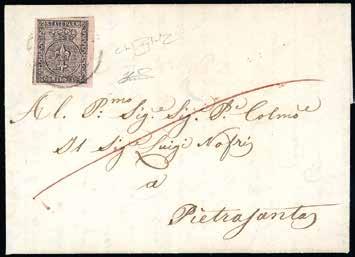 STATI PARM.
Al P.mo Sig.e Sig. P.e Colmo
Il Sig.e Luigi Nofri
a
Pietrasanta